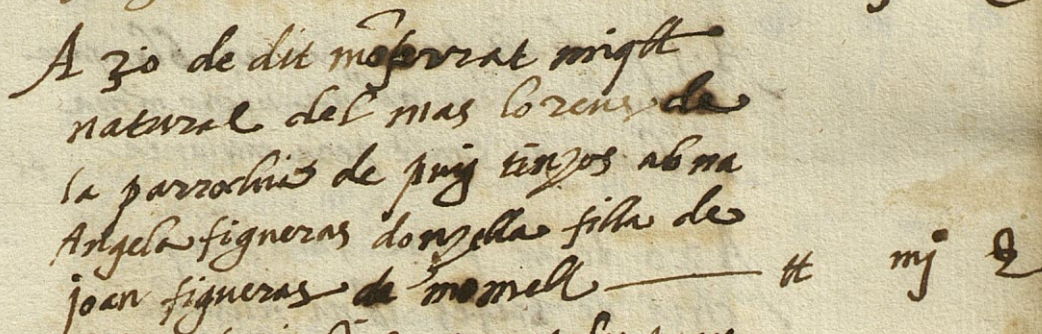 A 30 de dit mōserrat miqll
natural del mas lorens de
la parrochia de puig tinyos ab na
Angela figueras donzella filla de
joan figueras de momell — tt iiij ꝺ